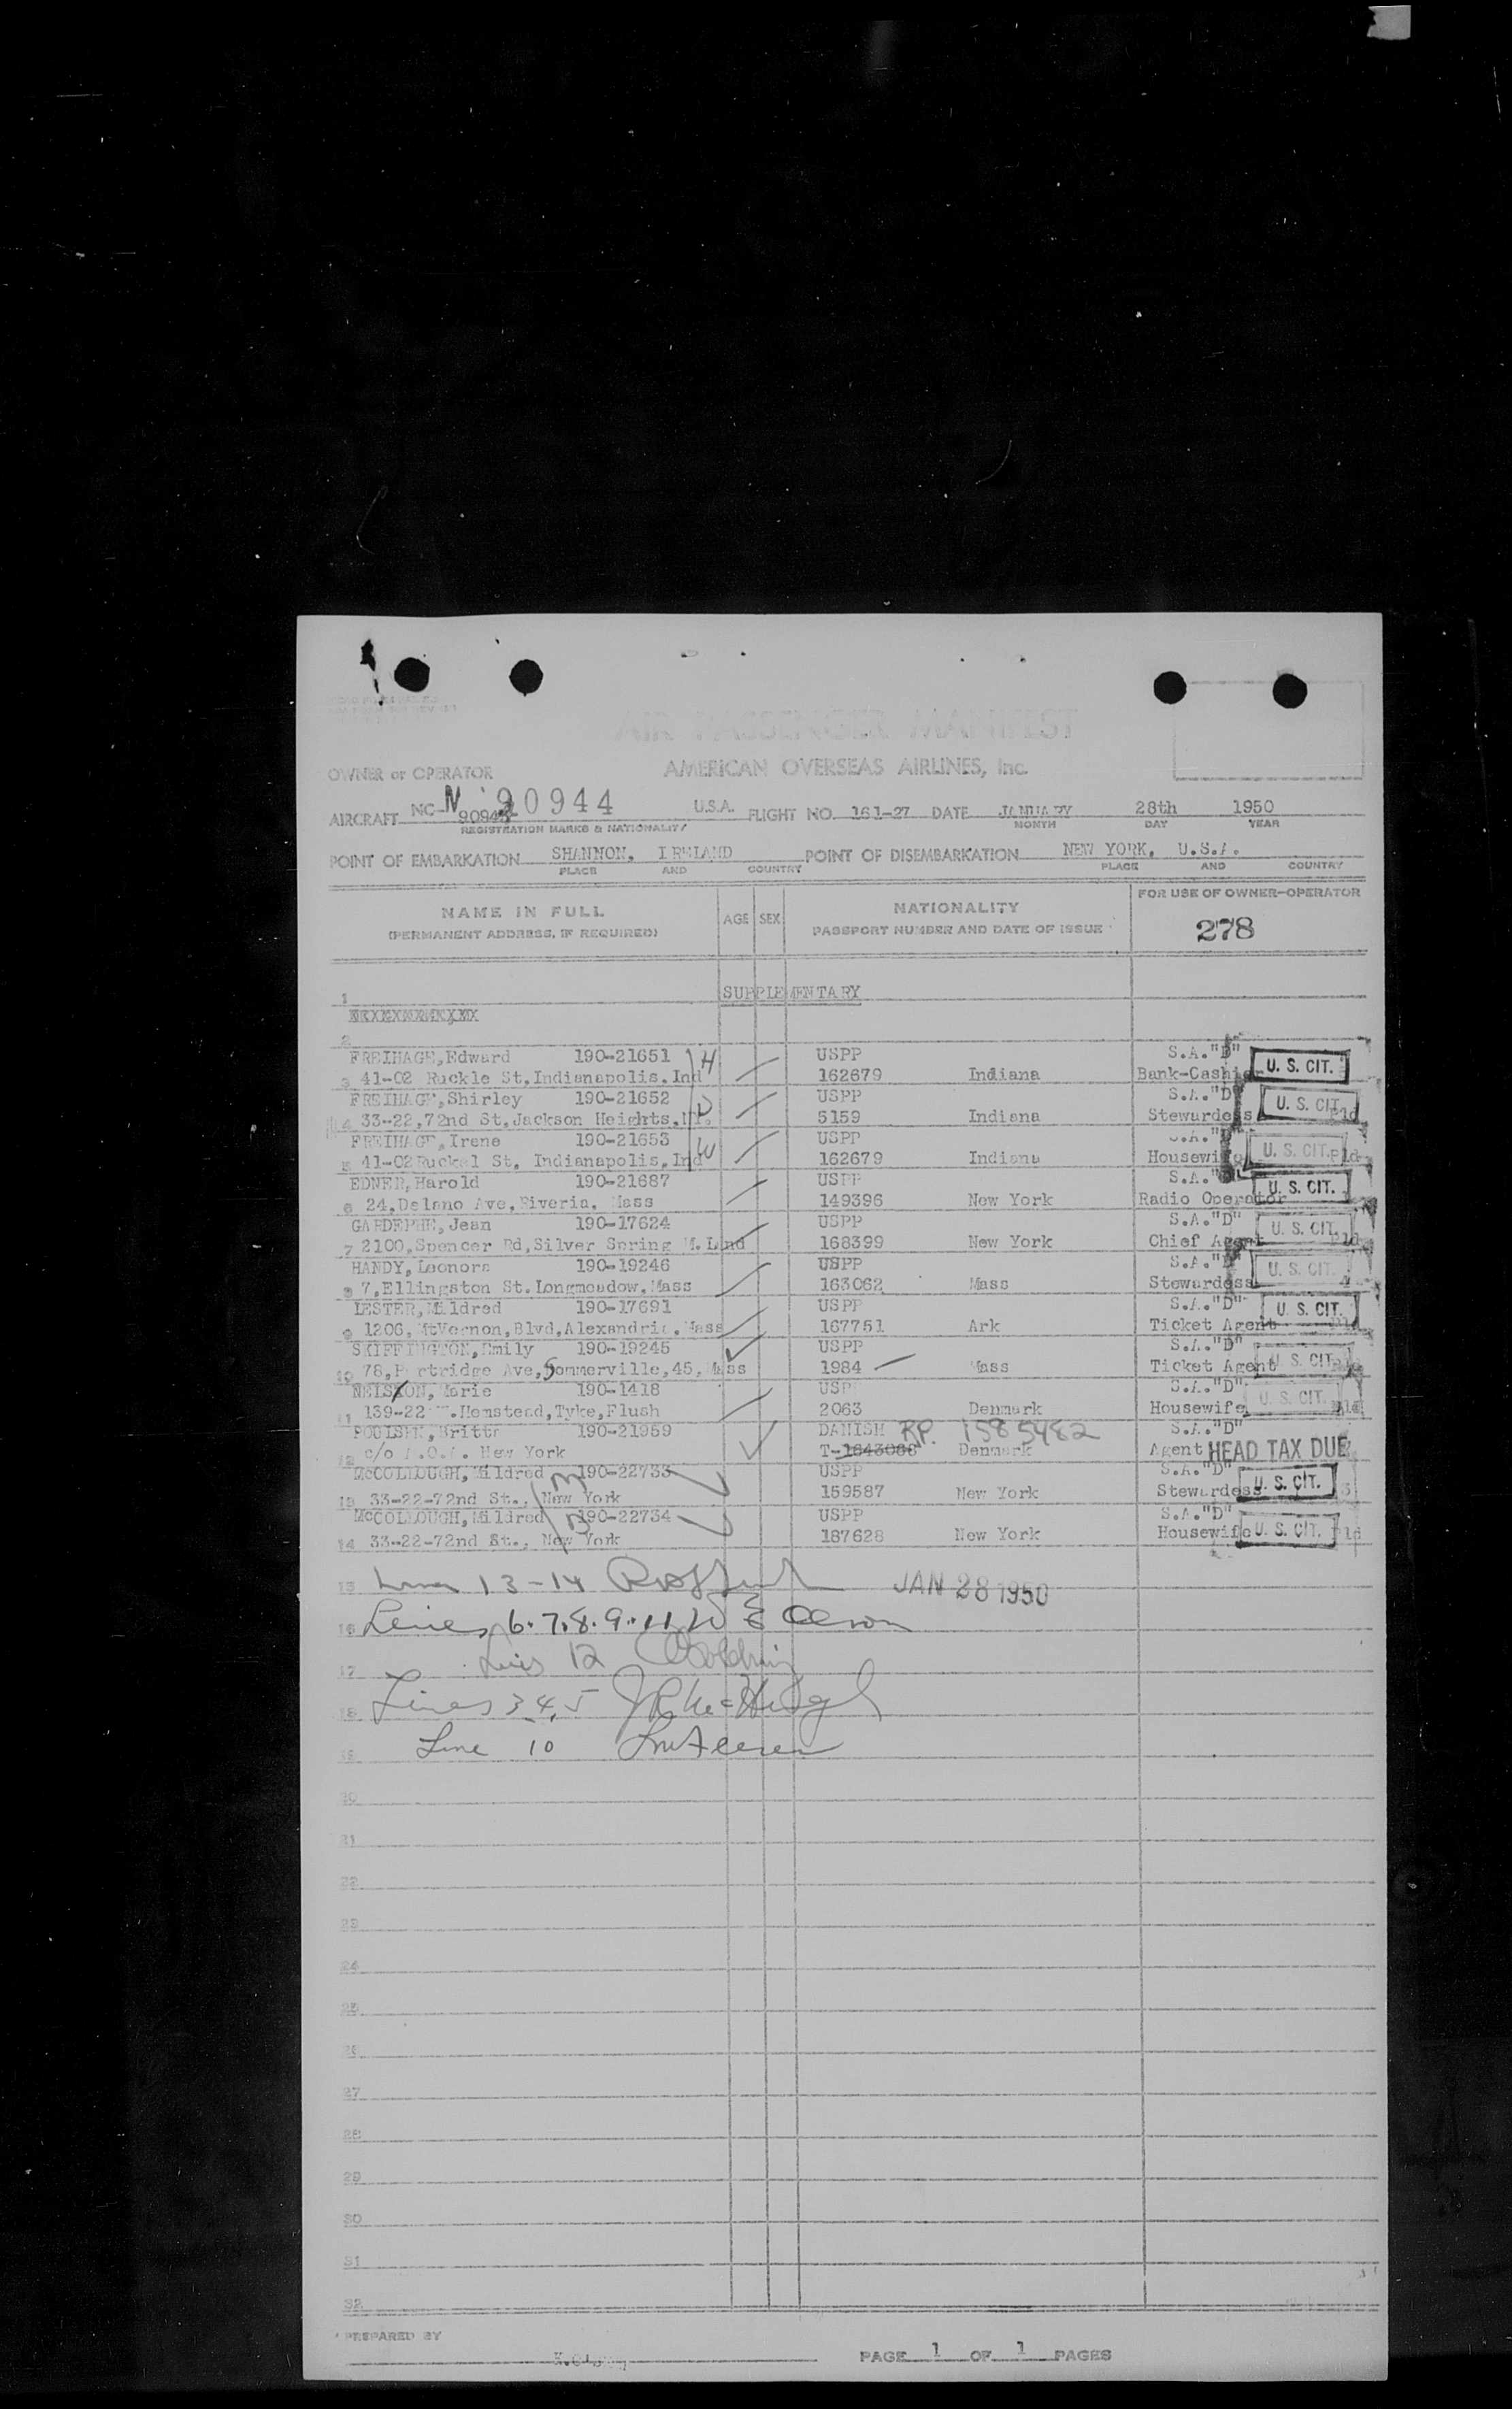 OWNER or OPERATOR AMERICAN OVERSEAS AIRLINES, Inc.
AIRCRAFT NC N 90944 U.S.A. FLIGHT NO. 161-27 DATE JANUARY 28th 1950
REGISTRATION MARKS & NATIONALITY MONTH DAY YEAR
POINT OF EMBARKATION SHANNON, IRELAND POINT OF DISEMBARKATION NEW YORK, U.S.A.
PLACE AND COUNTRY PLACE AND COUNTRY
NAME IN FULL AGE SEX NATIONALITY FOR USE OF OWNER-OPERATOR
(PERMANENT ADDRESS, IF REQUIRED) PASSPORT NUMBER AND DATE OF ISSUE 278
1 SUPPLEMENTARY
2
FREIHAGE, Edward 190-21651 H USPP S.A."D"
3 41-02 Ruckle St, Indianapolis. Ind 162679 Indiana Bank-Cashier U. S. CIT.
FREIHAGE, Shirley 190-21652 D USPP S.A."D"
4 33-22,72nd St, Jackson Heights, 5159 Indiana Stewardess U. S. CIT.
FREIHAGE, Irene 190-21653 W USPP S.A."D"
5 41-02 Ruckel St, Indianapolis, Ind 162679 Indiana Housewife U. S. CIT.
EDNER, Harold 190-21687 USPP S.A."D"
6 24, Delano Ave, Riveria, Mass 149396 New York Radio Operator U. S. CIT.
Jean 190-17624 USPP S.A."D"
7 2100, Spencer Rd, Silver Spring M. Land 168399 New York Chief Agent U. S. CIT.
HANDY, Leonora 190-19246 USPP S.A."D"
8 7, Ellingston St. Longmeadow, Mass 163062 Mass Stewardess U. S. CIT.
LESTER, Mildred 190-17691 USPP S.A."D"
9 1206, MtVernon, Blvd, Alexandria, Mass 167751 Ark Ticket Agent U. S. CIT.
SKIFFINGTON, Emily 190-19245 USPP S.A."D"
10 78, Partridge Ave, Sommerville, 45, Mass 1984 Mass Ticket Agent U. S. CIT.
Marie 190-1418 USPP S.A."D"
11 139-22 Hemstead, Tyke, Flush 2063 Denmark Housewife U. S. CIT.
POULSEN, Britta 190-21959 DANISH RP. 1585482 S.A."D"
12 c/o A.O.A. New York T-1643086 Denmark Agent HEAD TAX DUE
McCOLLOUGH, Mildred 190-22733 M USPP S.A."D"
13 33-22-72nd St., New York 159587 New York Stewardess U. S. CIT.
McCOLLOUGH, Mildred 190-22734 USPP S.A."D"
14 33-22-72nd St., New York 187628 New York Housewife U. S. CIT.
15 13-14 JAN 28 1950
16 Lines 6.7.8.9.11 Olson
17 12
18 Lines 3 4, 5
19 Line 10
20
21
22
23
24
25
26
27
28
29
30
31
32
PREPARED BY
PAGE 1 OF 1 PAGES